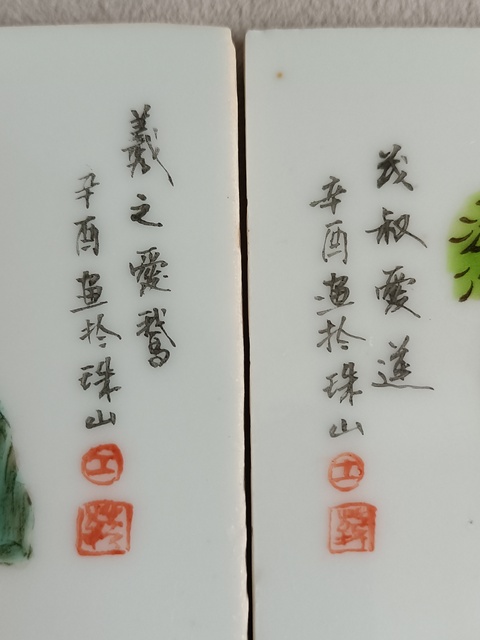 茂叔愛蓮
辛酉畫於珠山
工
羲之愛鵝
辛酉畫於珠山
工